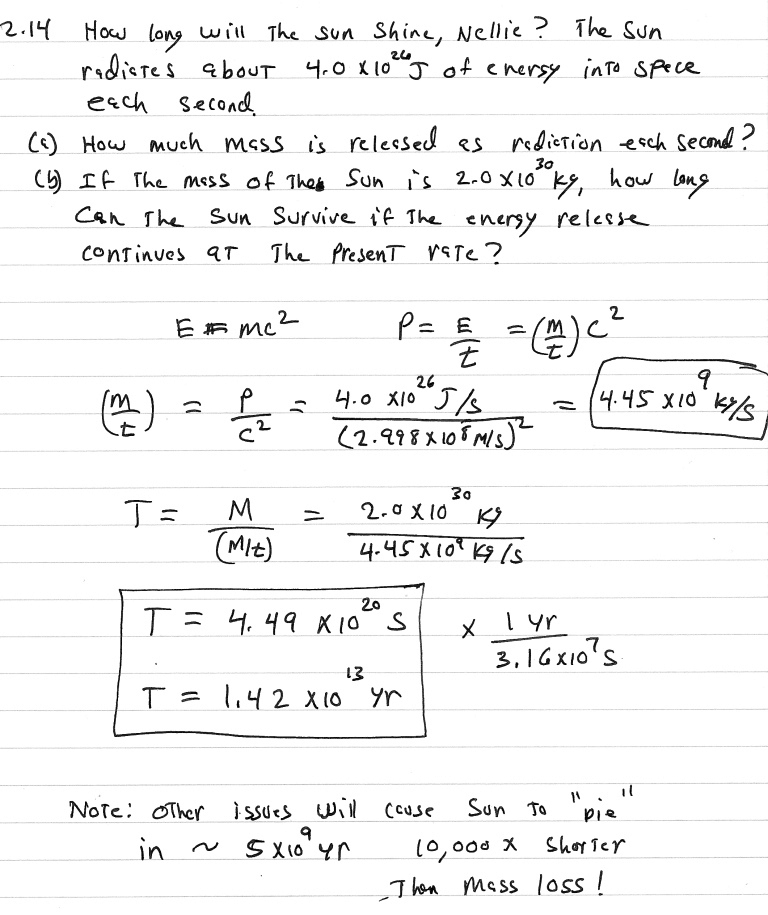 2.14 How long will The sun shine, Nellie? The Sun
radiates about 4.0 x10²⁶J of energy into space
each second.
(a) How much mass is released as radiation each second?
(b) If The mass of The Sun is 2.0 x10³⁰ kg, how long
Can The Sun Survive if The energy release
continues at The Present rate?
E = mc² P = E/t = (m/t) c²
(m/t) = P/c² = 4.0 x10²⁶ J/s / (2.998 x 10⁸ m/s)² = 4.45 x10⁹ kg/s
T = M/(M/t) = 2.0 x10³⁰ kg / 4.45 x10⁹ kg/s
T = 4.49 x10²⁰ s x 1 yr / 3.16x10⁷ s
T = 1.42 x10¹³ yr
Note: other issues will cause Sun to "Die"
in ~ 5 x10⁹ yr 10,000 x shorter
Then Mass loss!